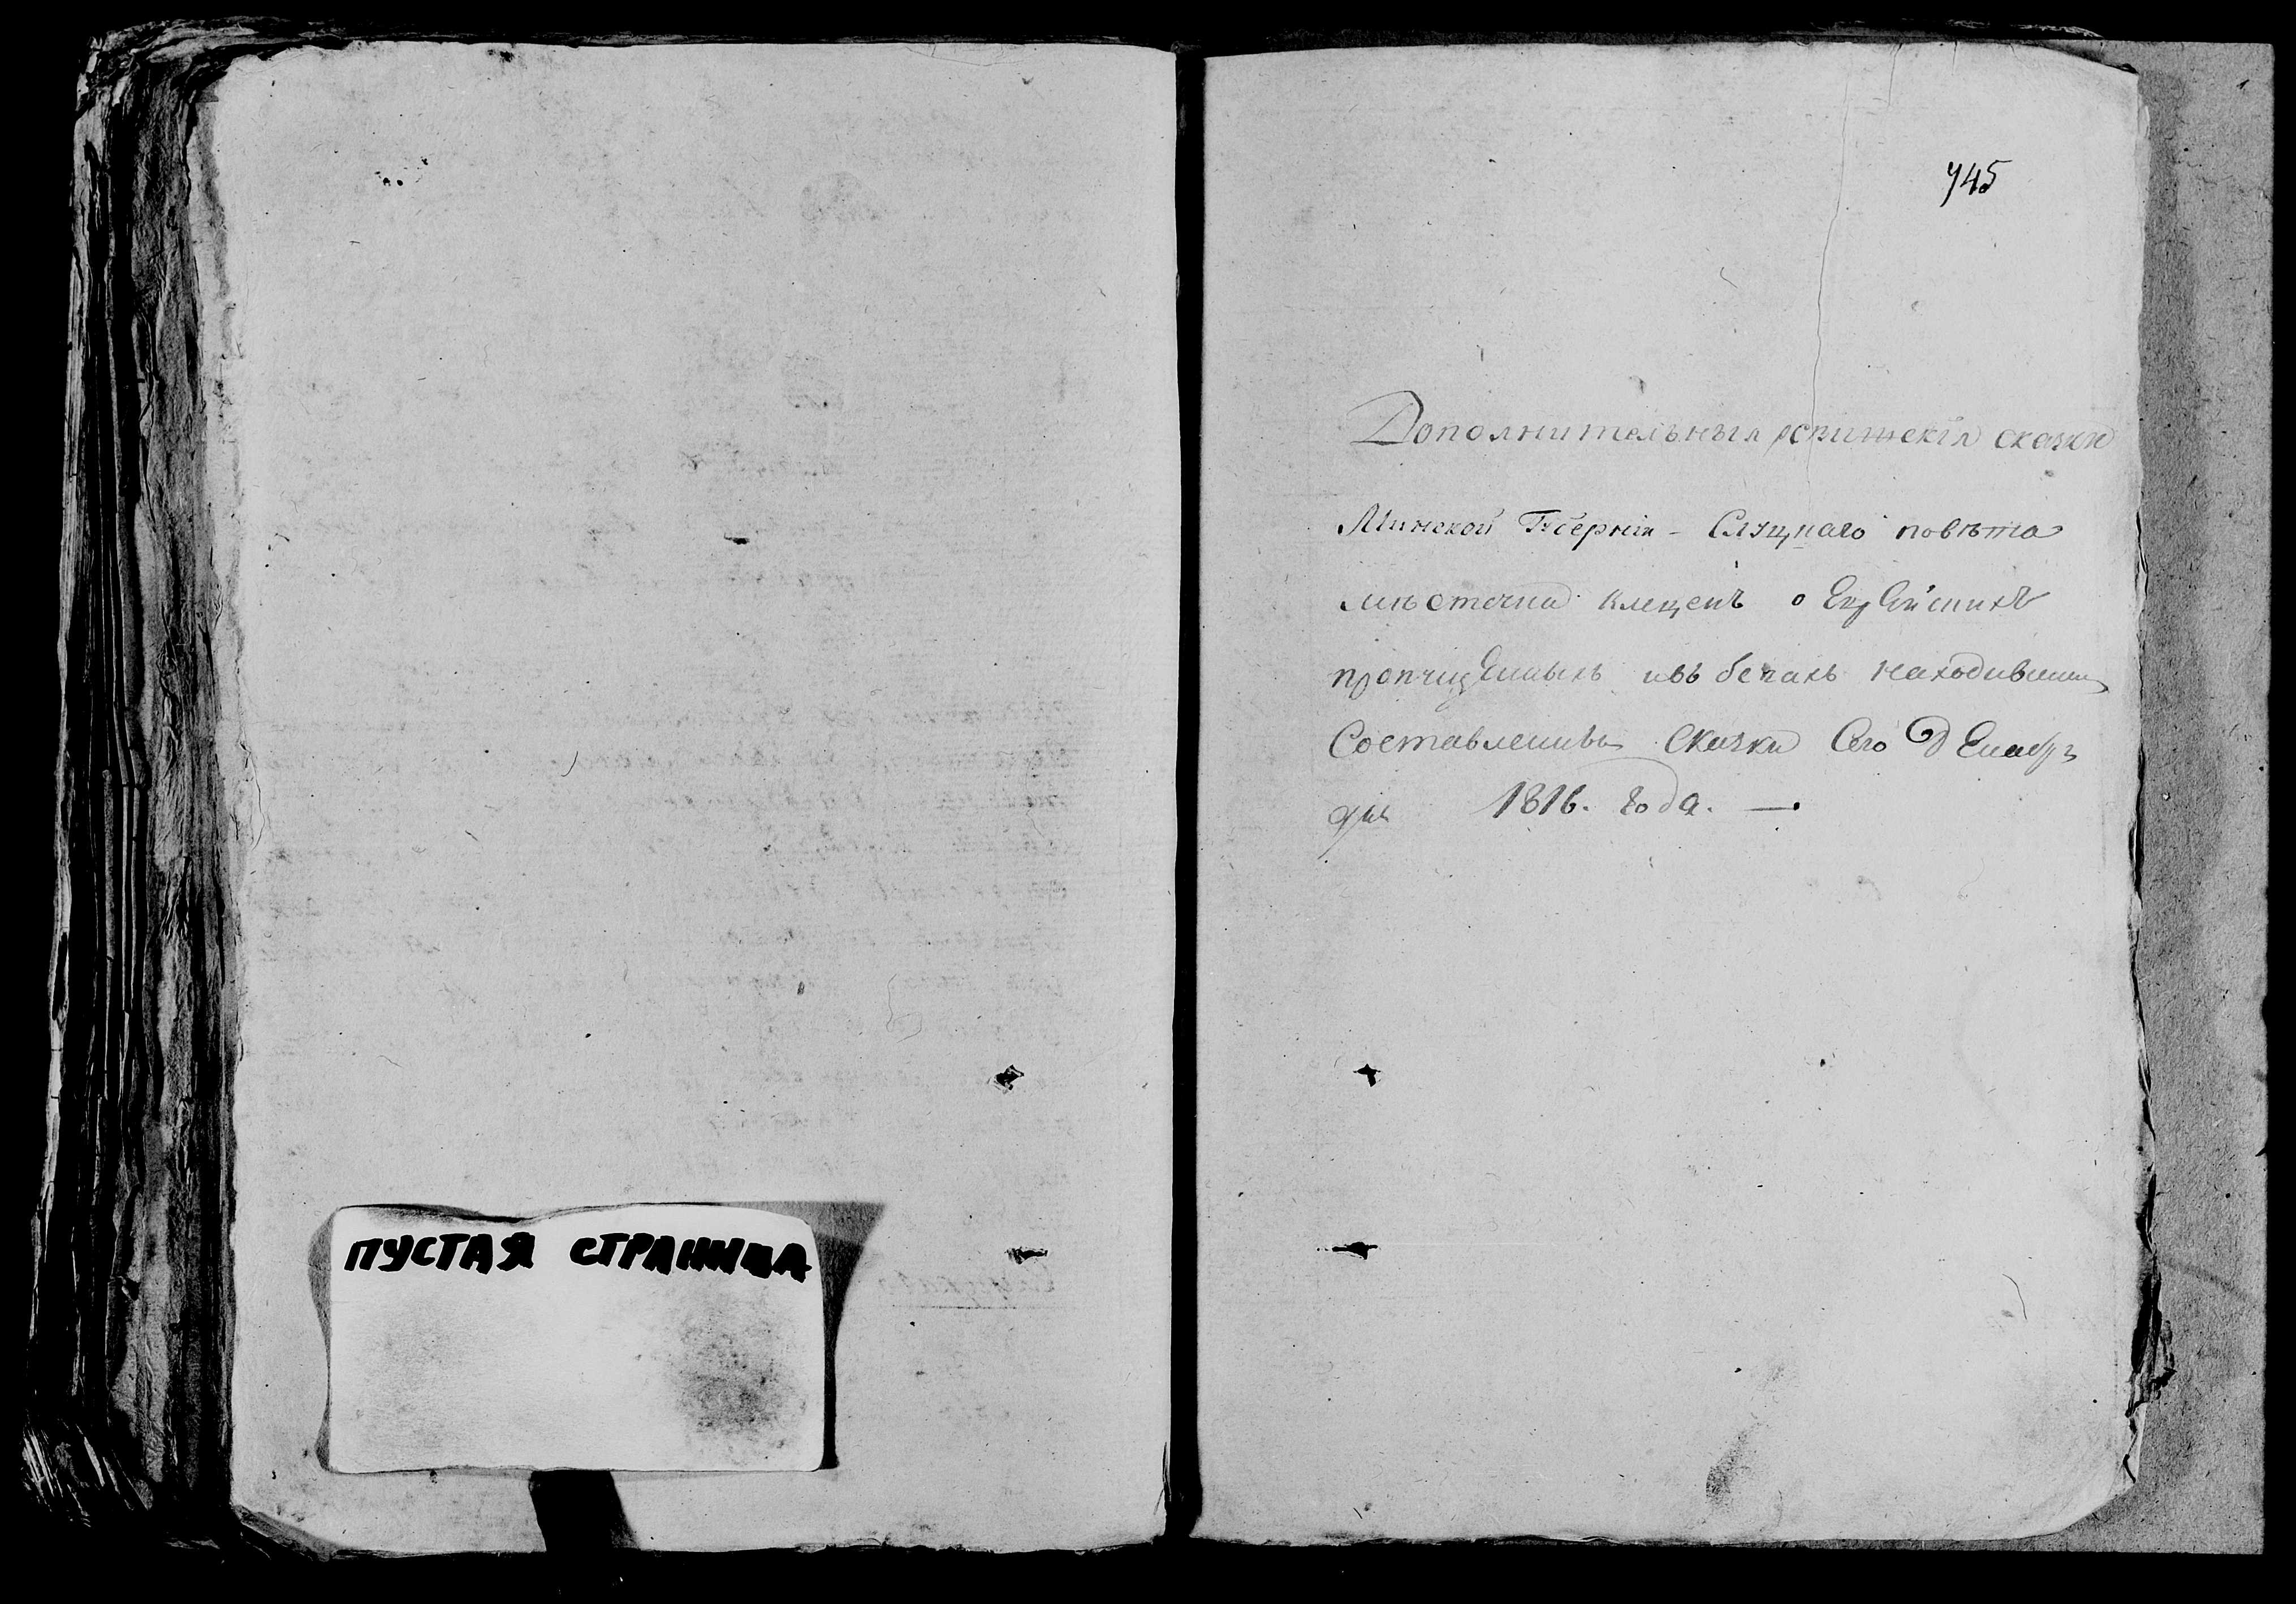 ПУСТАЯ СТРАНИЦА
745
Дополнительныя скаски
Минской Губернiи - Слуцкаго повѣта
мѣстечка Клецкъ о Еврѣйскихъ
пропущенныхъ ивъ бегахъ находивши
Составлены Сказки Сего Декабря
дня 1816. года. —.